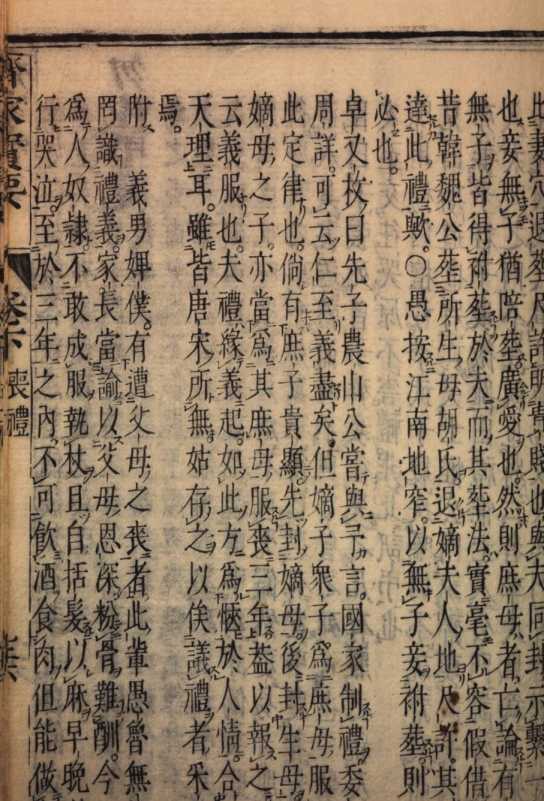 此妻穴退葬尺許所貴賤也與夫同封示繫
也。妾無子猶陪葬。廣愛也。然則庶母者亡論有
無子皆得祔葬於夫而其葬法實毫不容假借
昔韓魏公葬所生母胡氏退嫡夫人地尺許。其
達此禮歟。○愚按江南地窄。以無子妾祔葬。則
必也。
卓又枚曰先子農山公嘗與予言。國家制禮委
周詳。可云仁至義盡矣。但嫡子衆子爲庶母服
此定律也。倘有庶子貴顯。先封嫡母後封生母
嫡母之子亦當爲其庶母服喪三年。葢以報之
云義服也。夫禮緣義起。如此方爲愜於人情。合
天理耳。雖皆唐宋所無姑存之以俟議禮者采
焉。
附 義男婢僕。有遭父母之喪者。此輩愚魯無
罔識禮義。家長當諭以父母恩深粉骨難酬。今
爲人奴隸。不敢成服執杖且自括髮以麻早晚
行哭泣。至於三年之內。不可飲酒食肉。但能做
齊家寶要 卷下 喪禮